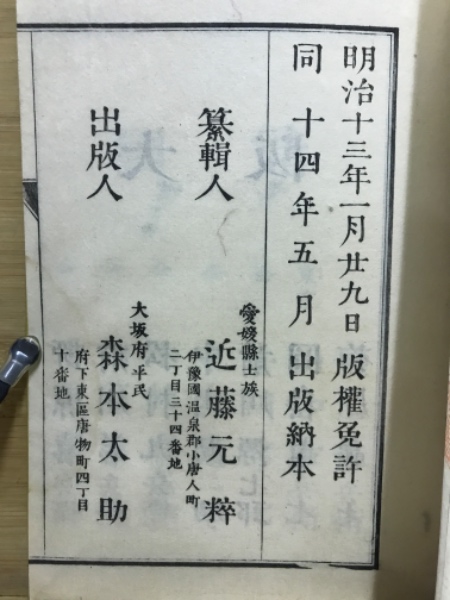 明治十三年一月廿九日 版權免許
同 十四年五月 出版納本
愛媛縣士族
纂輯人 近藤元粹
伊豫國温泉郡小唐人町
二丁目三十四番地
大坂府平民
出版人 森本太助
府下東區唐物町四丁目
十番地